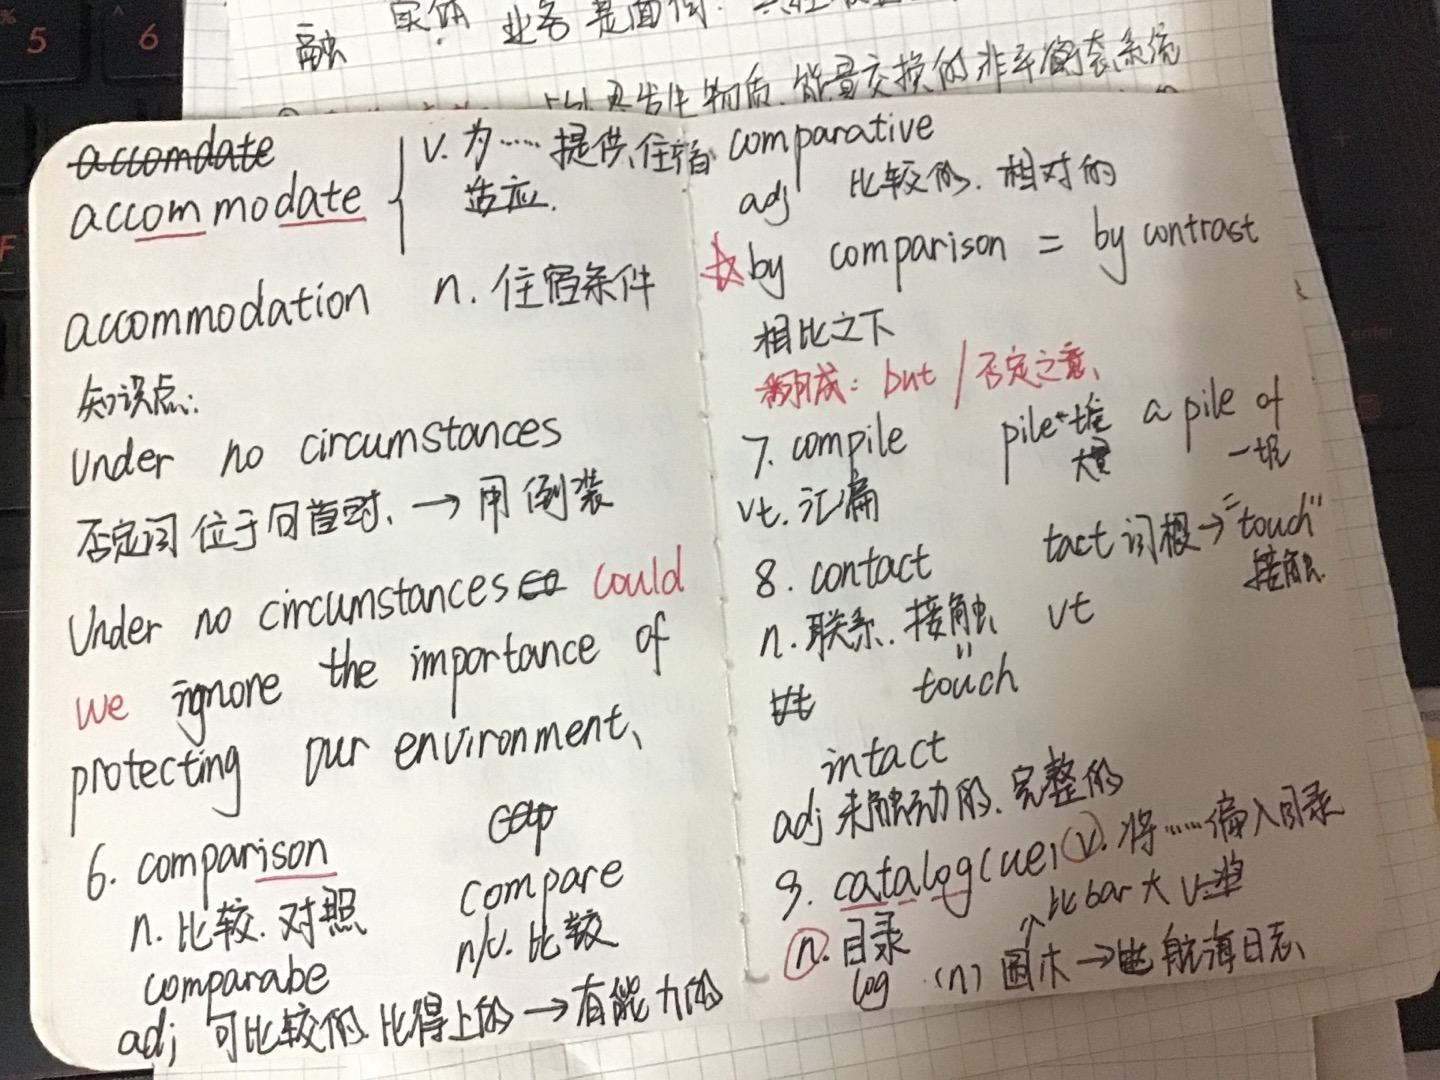 融 实体 业务 是面向
物质、能量交换的非平衡态系统
accomdate
accommodate v. 为……提供住宿
适应.
accommodation n. 住宿条件
知识点:
Under no circumstances
否定词位于句首时、→ 用倒装
Under no circumstances could
we ignore the importance of
protecting our environment、
6. comparison
n. 比较、对照
compare
n/v. 比较
comparabe
adj 可比较的、比得上的 → 有能力的
comparative
adj 比较的、相对的
☆ by comparison = by contrast
相比之下
翻成: but / 否定之意、
7. compile pile 堆 a pile of
大量 一堆
vt. 汇编
8. contact tact 词根 → "touch"
接触.
n. 联系、接触 vt
touch
intact
adj 未触动的、完整的
9. catalog(ue) v. 将……编入目录
n. 目录 比bar大
log (n) 圆木 → 航海日志、
5
6
F
enter